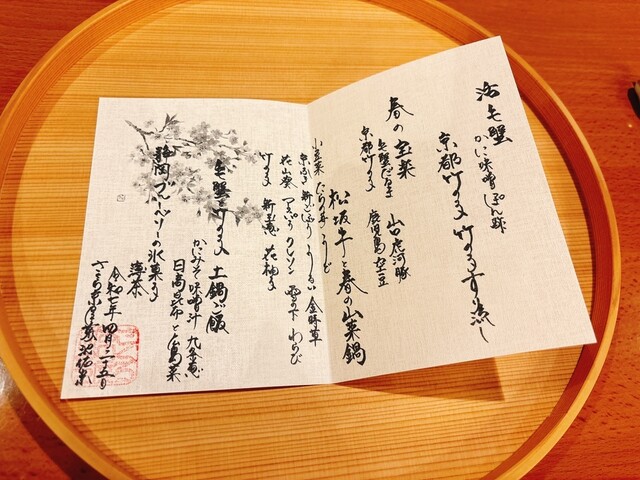 活毛蟹
かに味噌ぽん酢
京都竹の子 竹の子すり流し
春の宝楽
毛蟹だるま 山口虎河豚
京都竹の子 鹿児島空豆
松坂牛と春の山菜鍋
小豆菜 たらの芽 うど
花山葵 クレソン 雪の下 わらび
竹の子 新玉葱 花柚子
毛蟹と竹の子 土鍋ご飯
かにみそ味噌汁 九条葱
日高昆布と広島菜
静岡ブルーベリーの氷菓子
薄茶
令和七年四月二十五日